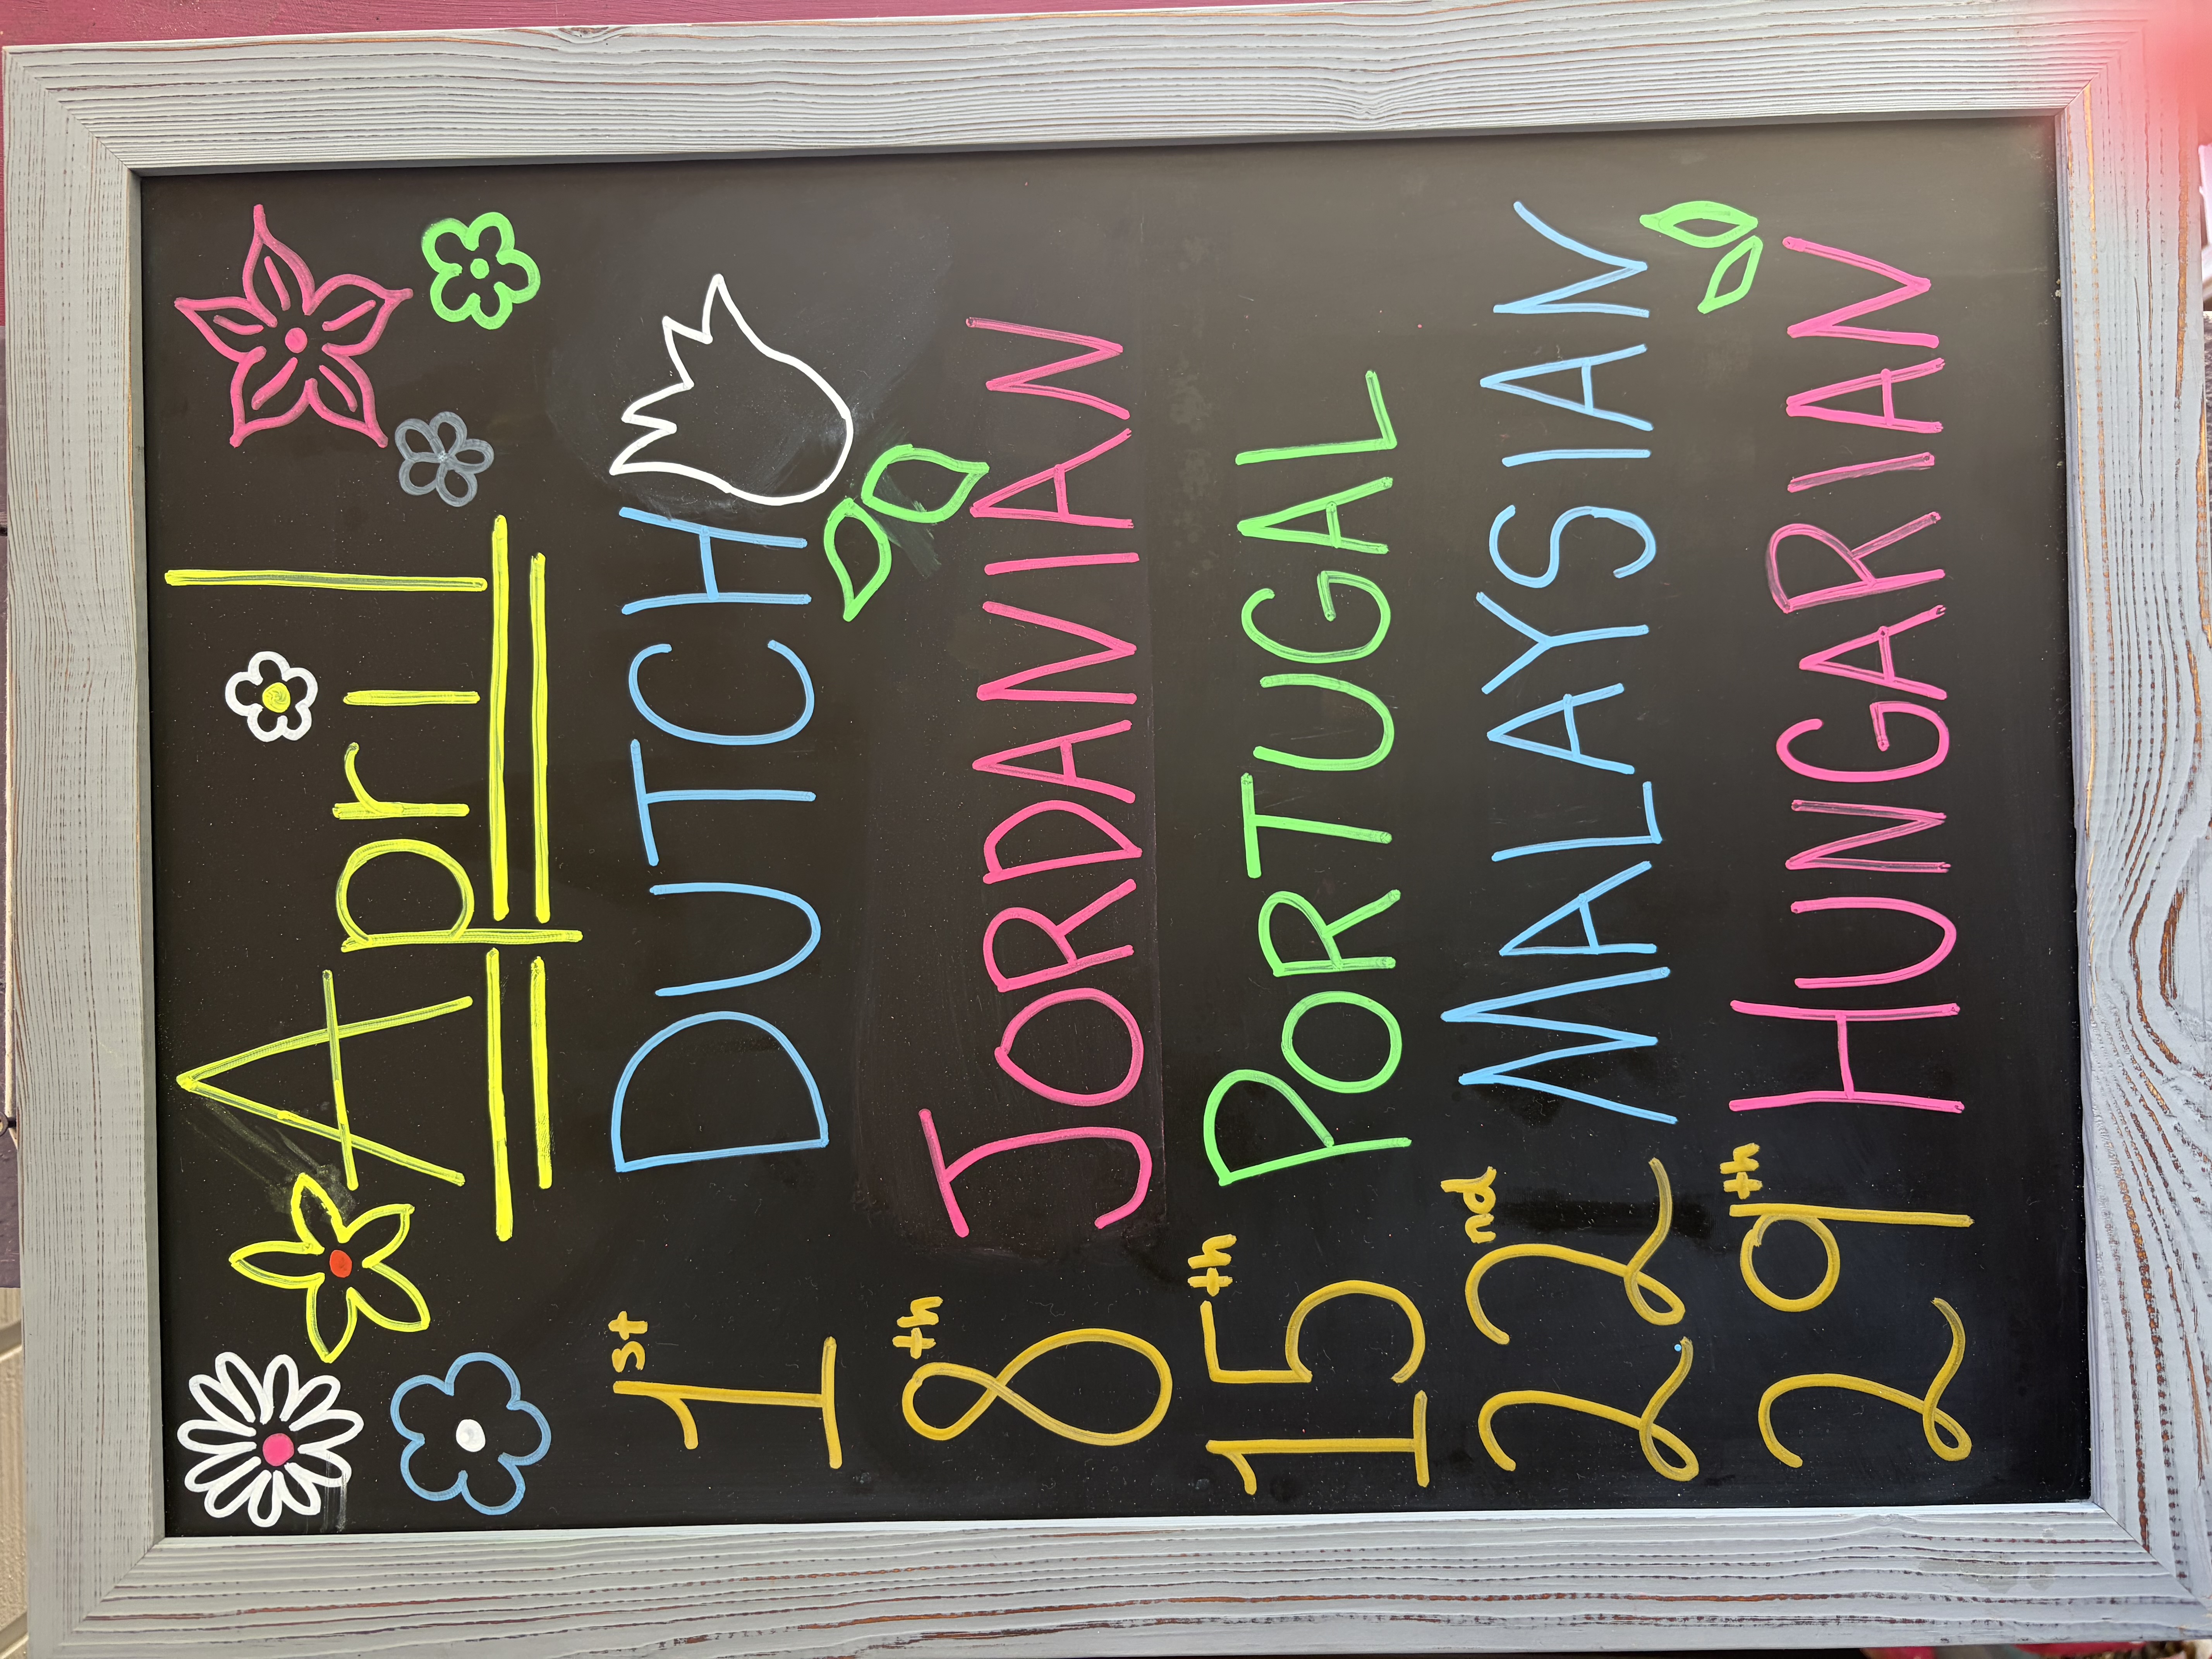 April
1st DUTCH
8th JORDANIAN
15th PORTUGAL
22nd MALAYSIAN
29th HUNGARIAN